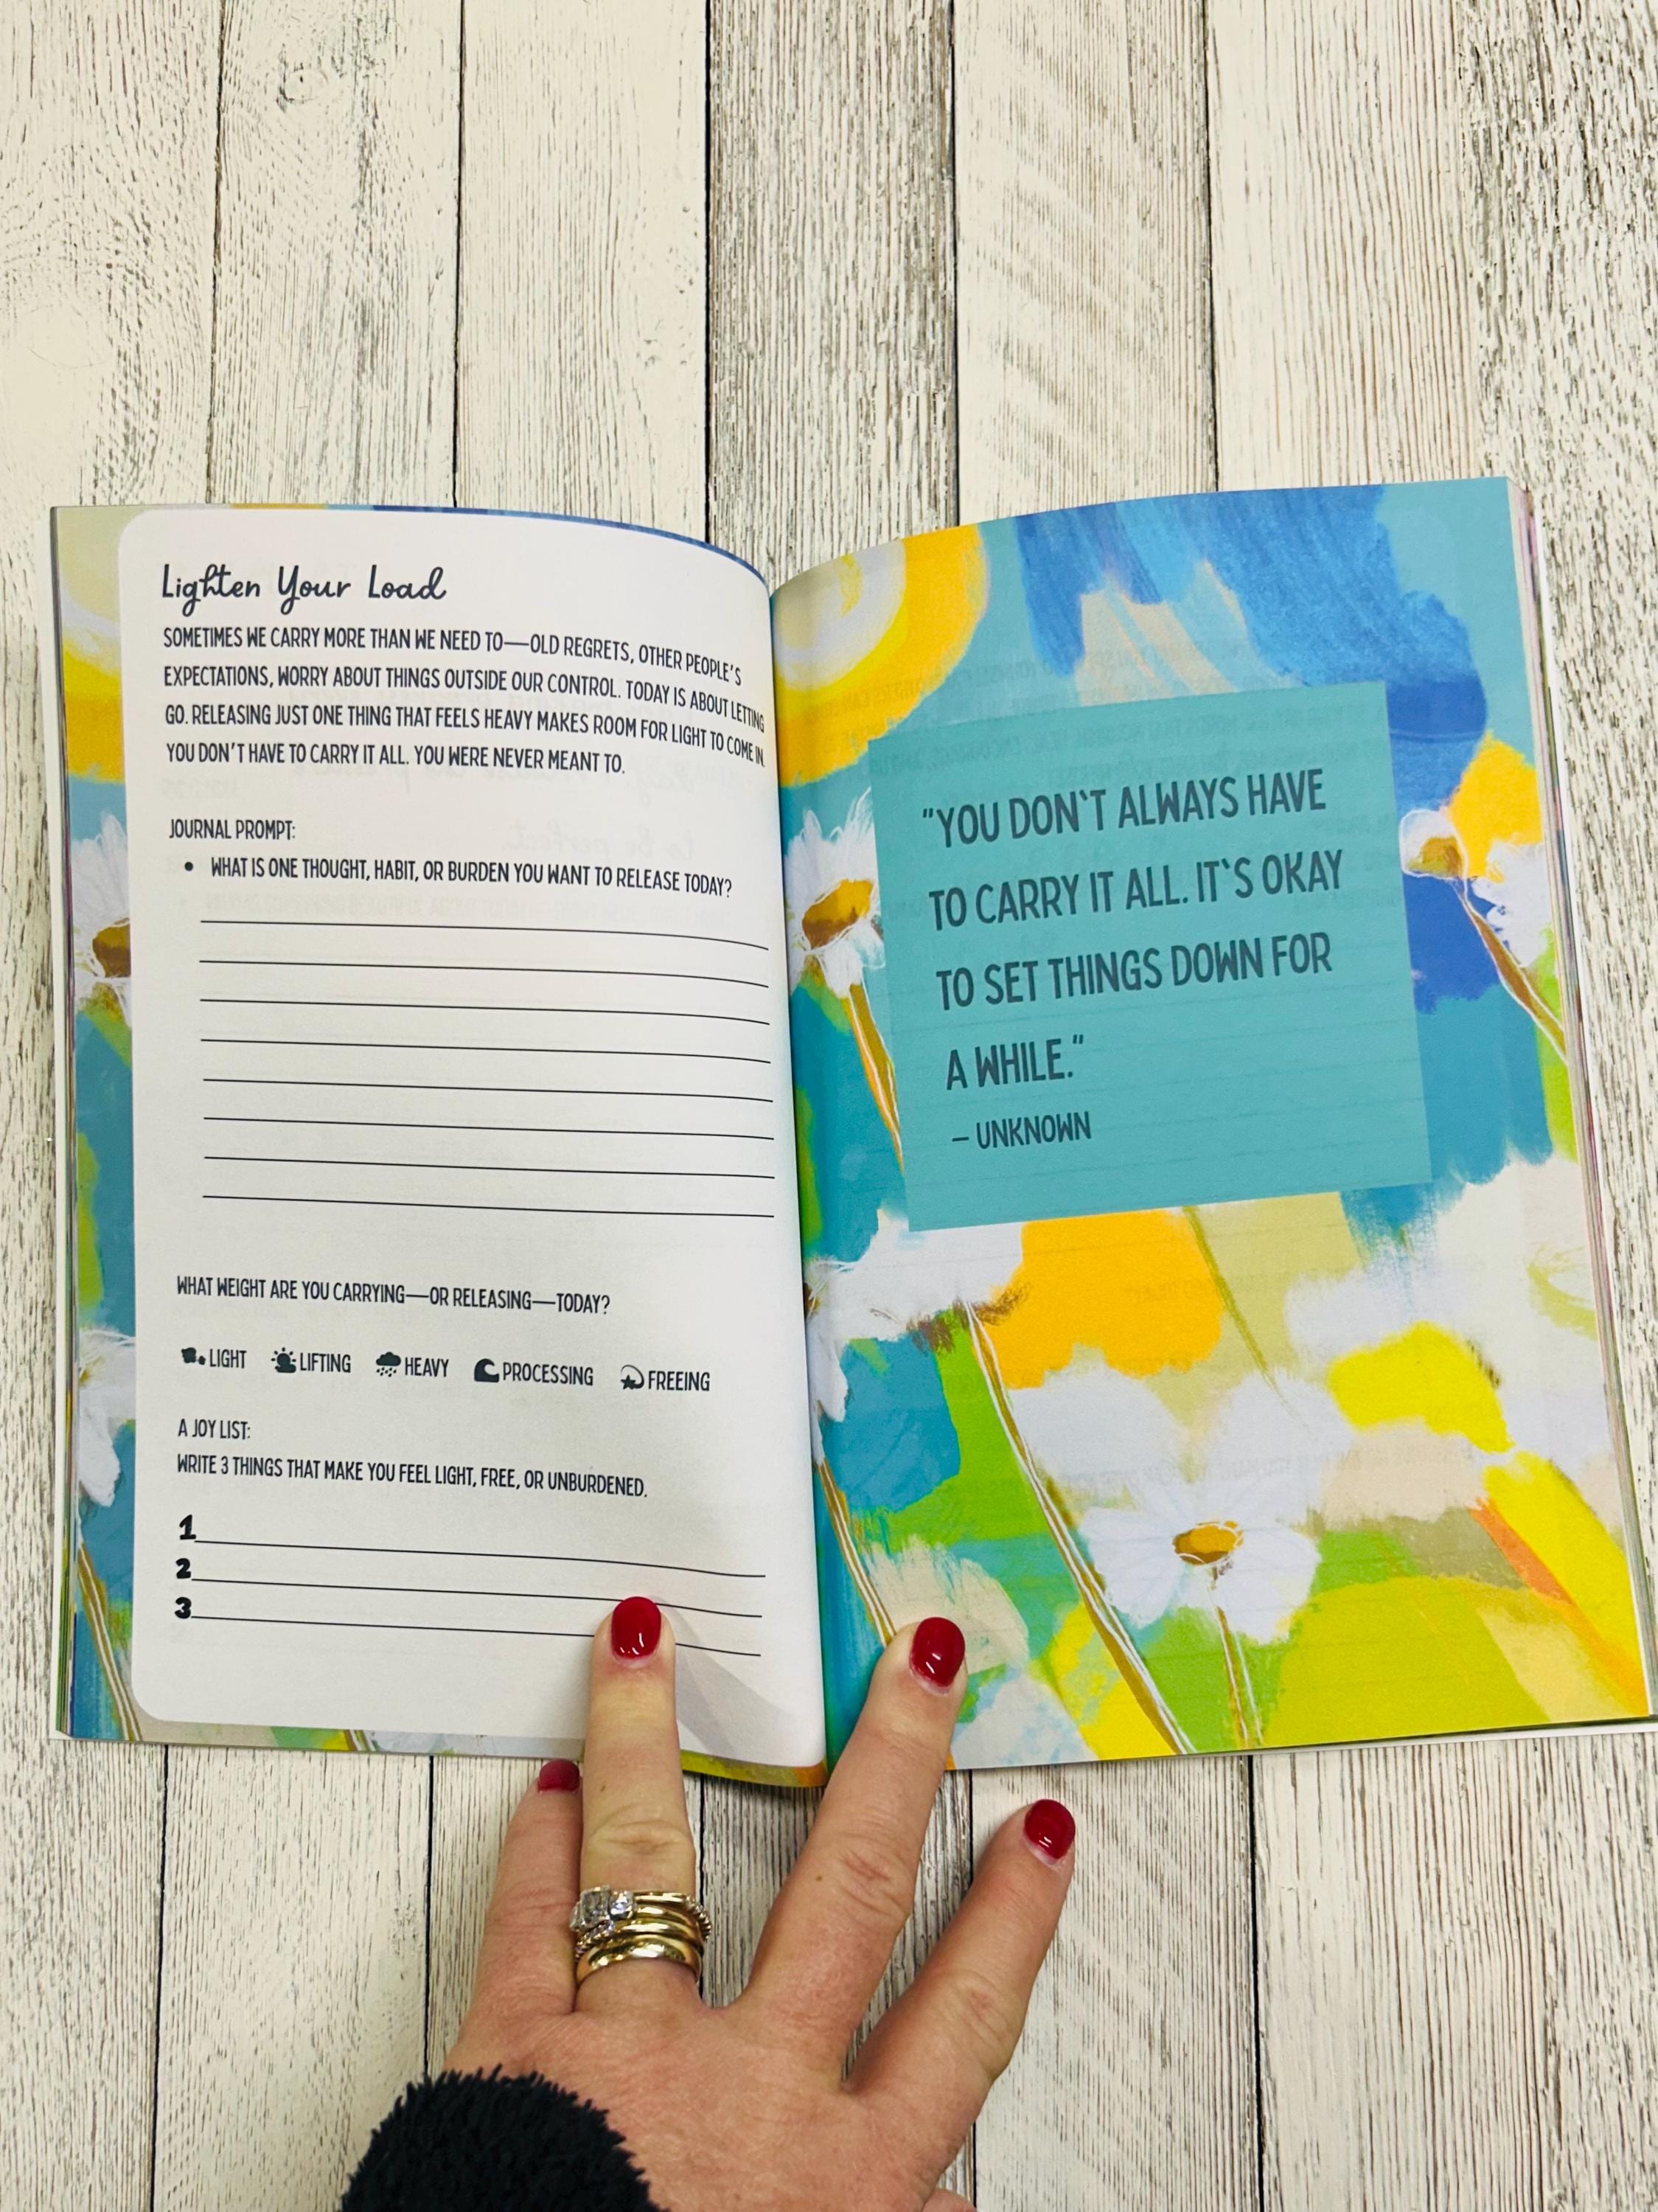 Lighten Your Load
SOMETIMES WE CARRY MORE THAN WE NEED TO—OLD REGRETS, OTHER PEOPLE'S
EXPECTATIONS, WORRY ABOUT THINGS OUTSIDE OUR CONTROL. TODAY IS ABOUT LETTING
GO. RELEASING JUST ONE THING THAT FEELS HEAVY MAKES ROOM FOR LIGHT TO COME IN.
YOU DON'T HAVE TO CARRY IT ALL. YOU WERE NEVER MEANT TO.
JOURNAL PROMPT:
• WHAT IS ONE THOUGHT, HABIT, OR BURDEN YOU WANT TO RELEASE TODAY?
WHAT WEIGHT ARE YOU CARRYING—OR RELEASING—TODAY?
LIGHT LIFTING HEAVY PROCESSING FREEING
A JOY LIST:
WRITE 3 THINGS THAT MAKE YOU FEEL LIGHT, FREE, OR UNBURDENED.
1
2
3
"YOU DON'T ALWAYS HAVE
TO CARRY IT ALL. IT'S OKAY
TO SET THINGS DOWN FOR
A WHILE."
– UNKNOWN